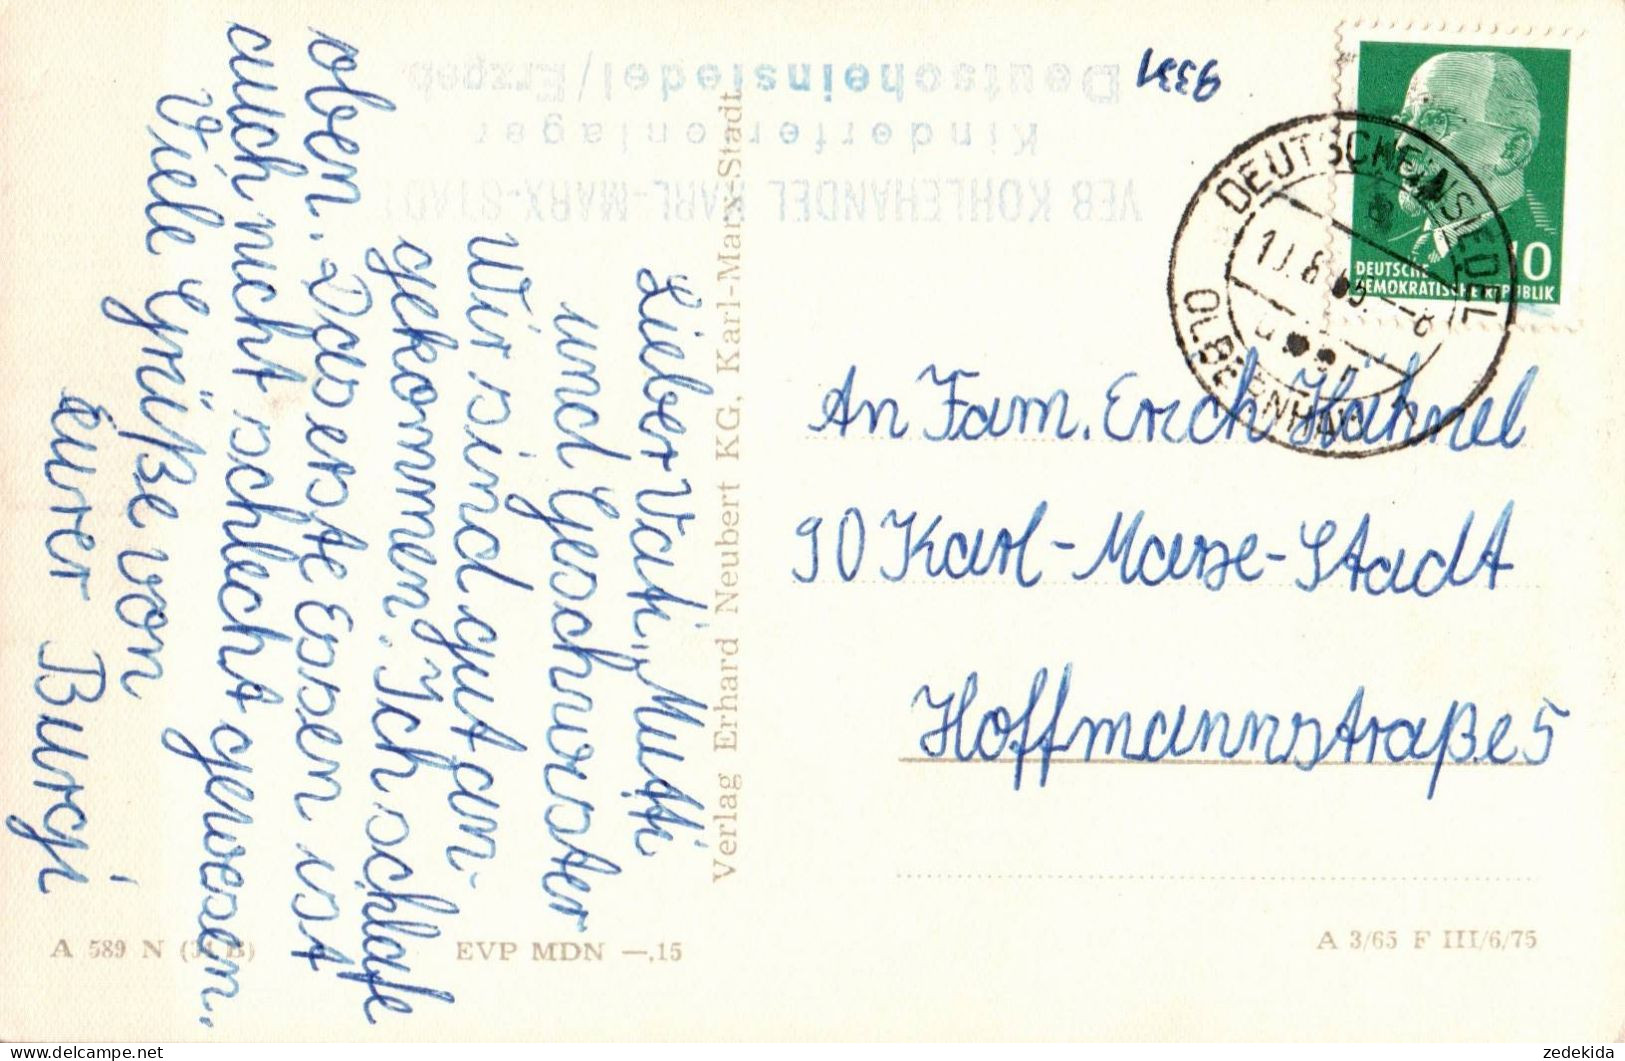 Lieber Vati, Mutti
und Geschwister
Wir sind gut an-
gekommen. Ich schlafe
oben. Das erste Essen ist
auch nicht schlecht gewesen.
Viele Grüße von
eurer Burgi
VEB KOHLEHANDEL KARL-MARX-STADT
Kinderferienlager
Deutscheinsiedel/Erzgeb
9331
Verlag Erhard Neubert KG, Karl-Marx-Stadt
DEUTSCHEINSIEDEL
OLBERNHAU
10
DEUTSCHE
DEMOKRATISCHE REPUBLIK
An Fam. Erich Hähnel
90 Karl-Marx-Stadt
Hoffmannstraße 5
A 589 N
EVP MDN —.15
A 3/65 F III/6/75
zedekida